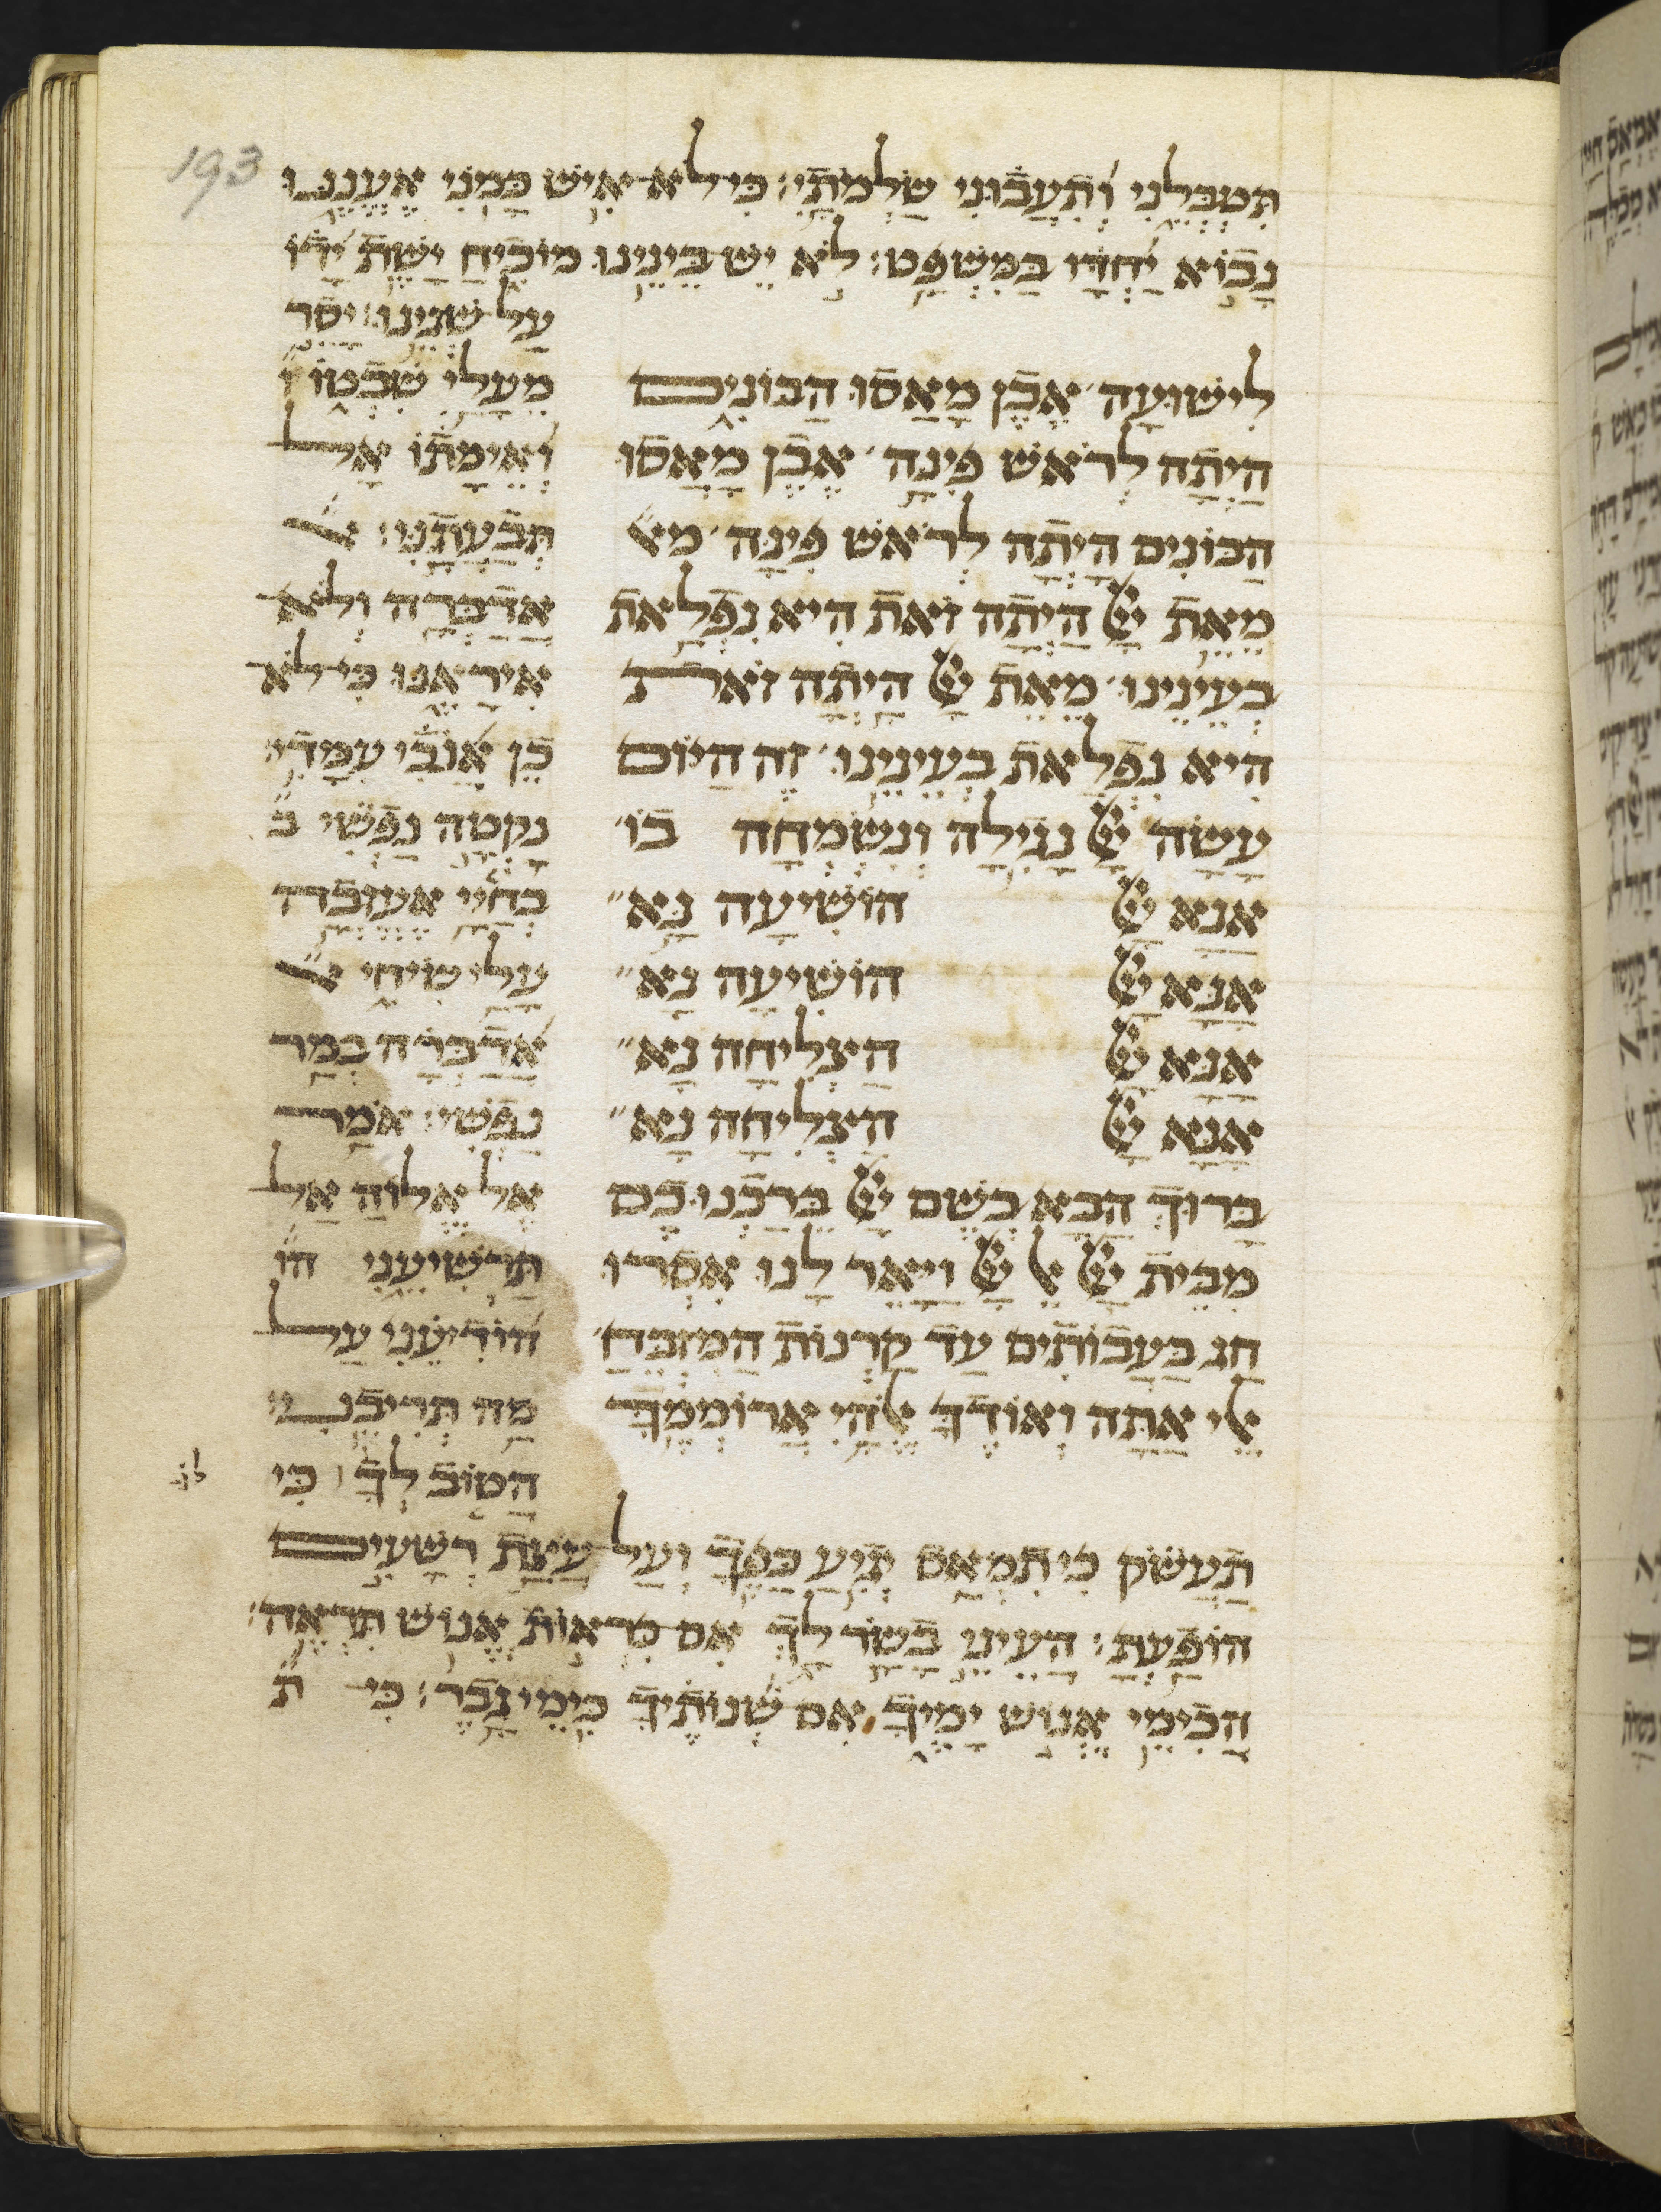 193
תִּטְבְּלֵנִי וְתִעֲבוּנִי שַׂלְמֹתָי: כִּי לֹא אִישׁ כָּמֹנִי אֶעֱנֶנּוּ
נָבוֹא יַחְדָּו בַּמִּשְׁפָּט: לֹא יֵשׁ בֵּינֵינוּ מוֹכִיחַ יָשֵׁת יָדוֹ
לִישׁוּעָה׳ אֶבֶן מָאֲסוּ הַבּוֹנִים
הָיְתָה לְרֹאשׁ פִּינָה׳ אֶבֶן מָאֲסוּ
הַבּוֹנִים הָיְתָה לְרֹאשׁ פִּינָּה׳ מא״
מֵאֵת יְיָ הָיְתָה זֹאת הִיא נִפְלָאת
בְּעֵינֵינוּ׳ מֵאֵת יְיָ הָיְתָה זֹאת
הִיא נִפְלָאת בְּעֵינֵינוּ׳ זֶה הַיּוֹם
עָשָׂה יְיָ נָגִילָה וְנִשְׂמְחָה בוֹ׳
אָנָּא יְיָ הוֹשִׁיעָה נָּא״
אָנָּא יְיָ הוֹשִׁיעָה נָּא״
אָנָּא יְיָ הַצְלִיחָה נָא״
אָנָּא יְיָ הַצְלִיחָה נָא״
בָּרוּךְ הַבָּא בְּשֵׁם יְיָ בֵּרַכְנוּכֶם
מִבֵּית יְיָ אֵל יְיָ וַיָּאֶר לָנוּ אִסְרוּ
חַג בַּעֲבוֹתִים עַד קַרְנוֹת הַמִּזְבֵּחַ׳
אֵלִי אַתָּה וְאוֹדֶךָּ אֱלֹהַי אֲרוֹמְמֶךָּ
עַל שְׁנֵינוּ: יָסֵר
מֵעָלַי שִׁבְטוֹ ו״
וְאֵימָתוֹ אַל
תְּבַעֲתַנִּי: א״
אֲדַבְּרָה וְלֹא
אִירָאֶנּוּ כִּי לֹא
כֵן אָנֹכִי עִמָּדִי:
נָקְטָה נַפְשִׁי ב״
בְּחַיָּי אֶעֶזְבָה
עָלַי שִׂיחִי א״
אֲדַבְּרָה בְּמַר
נַפְשִׁי: אֹמַר
אֶל אֱלוֹהַּ אַל
תַּרְשִׁיעֵנִי הו״
הוֹדִיעֵנִי עַל
מַה תְּרִיבֵנִי:
הֲטוֹב לְךָ כִּי
תַעֲשֹׁק כִּי תִמְאַס יְגִיעַ כַּפֶּךָ וְעַל עֲצַת רְשָׁעִים
הוֹפָעְתָּ: הַעֵינֵי בָשָׂר לָךְ אִם כִּרְאוֹת אֱנוֹשׁ תִּרְאֶה:
הֲכִימֵי אֱנוֹשׁ יָמֶיךָ אִם שְׁנוֹתֶיךָ כִּימֵי גָבֶר: כִּי ת״